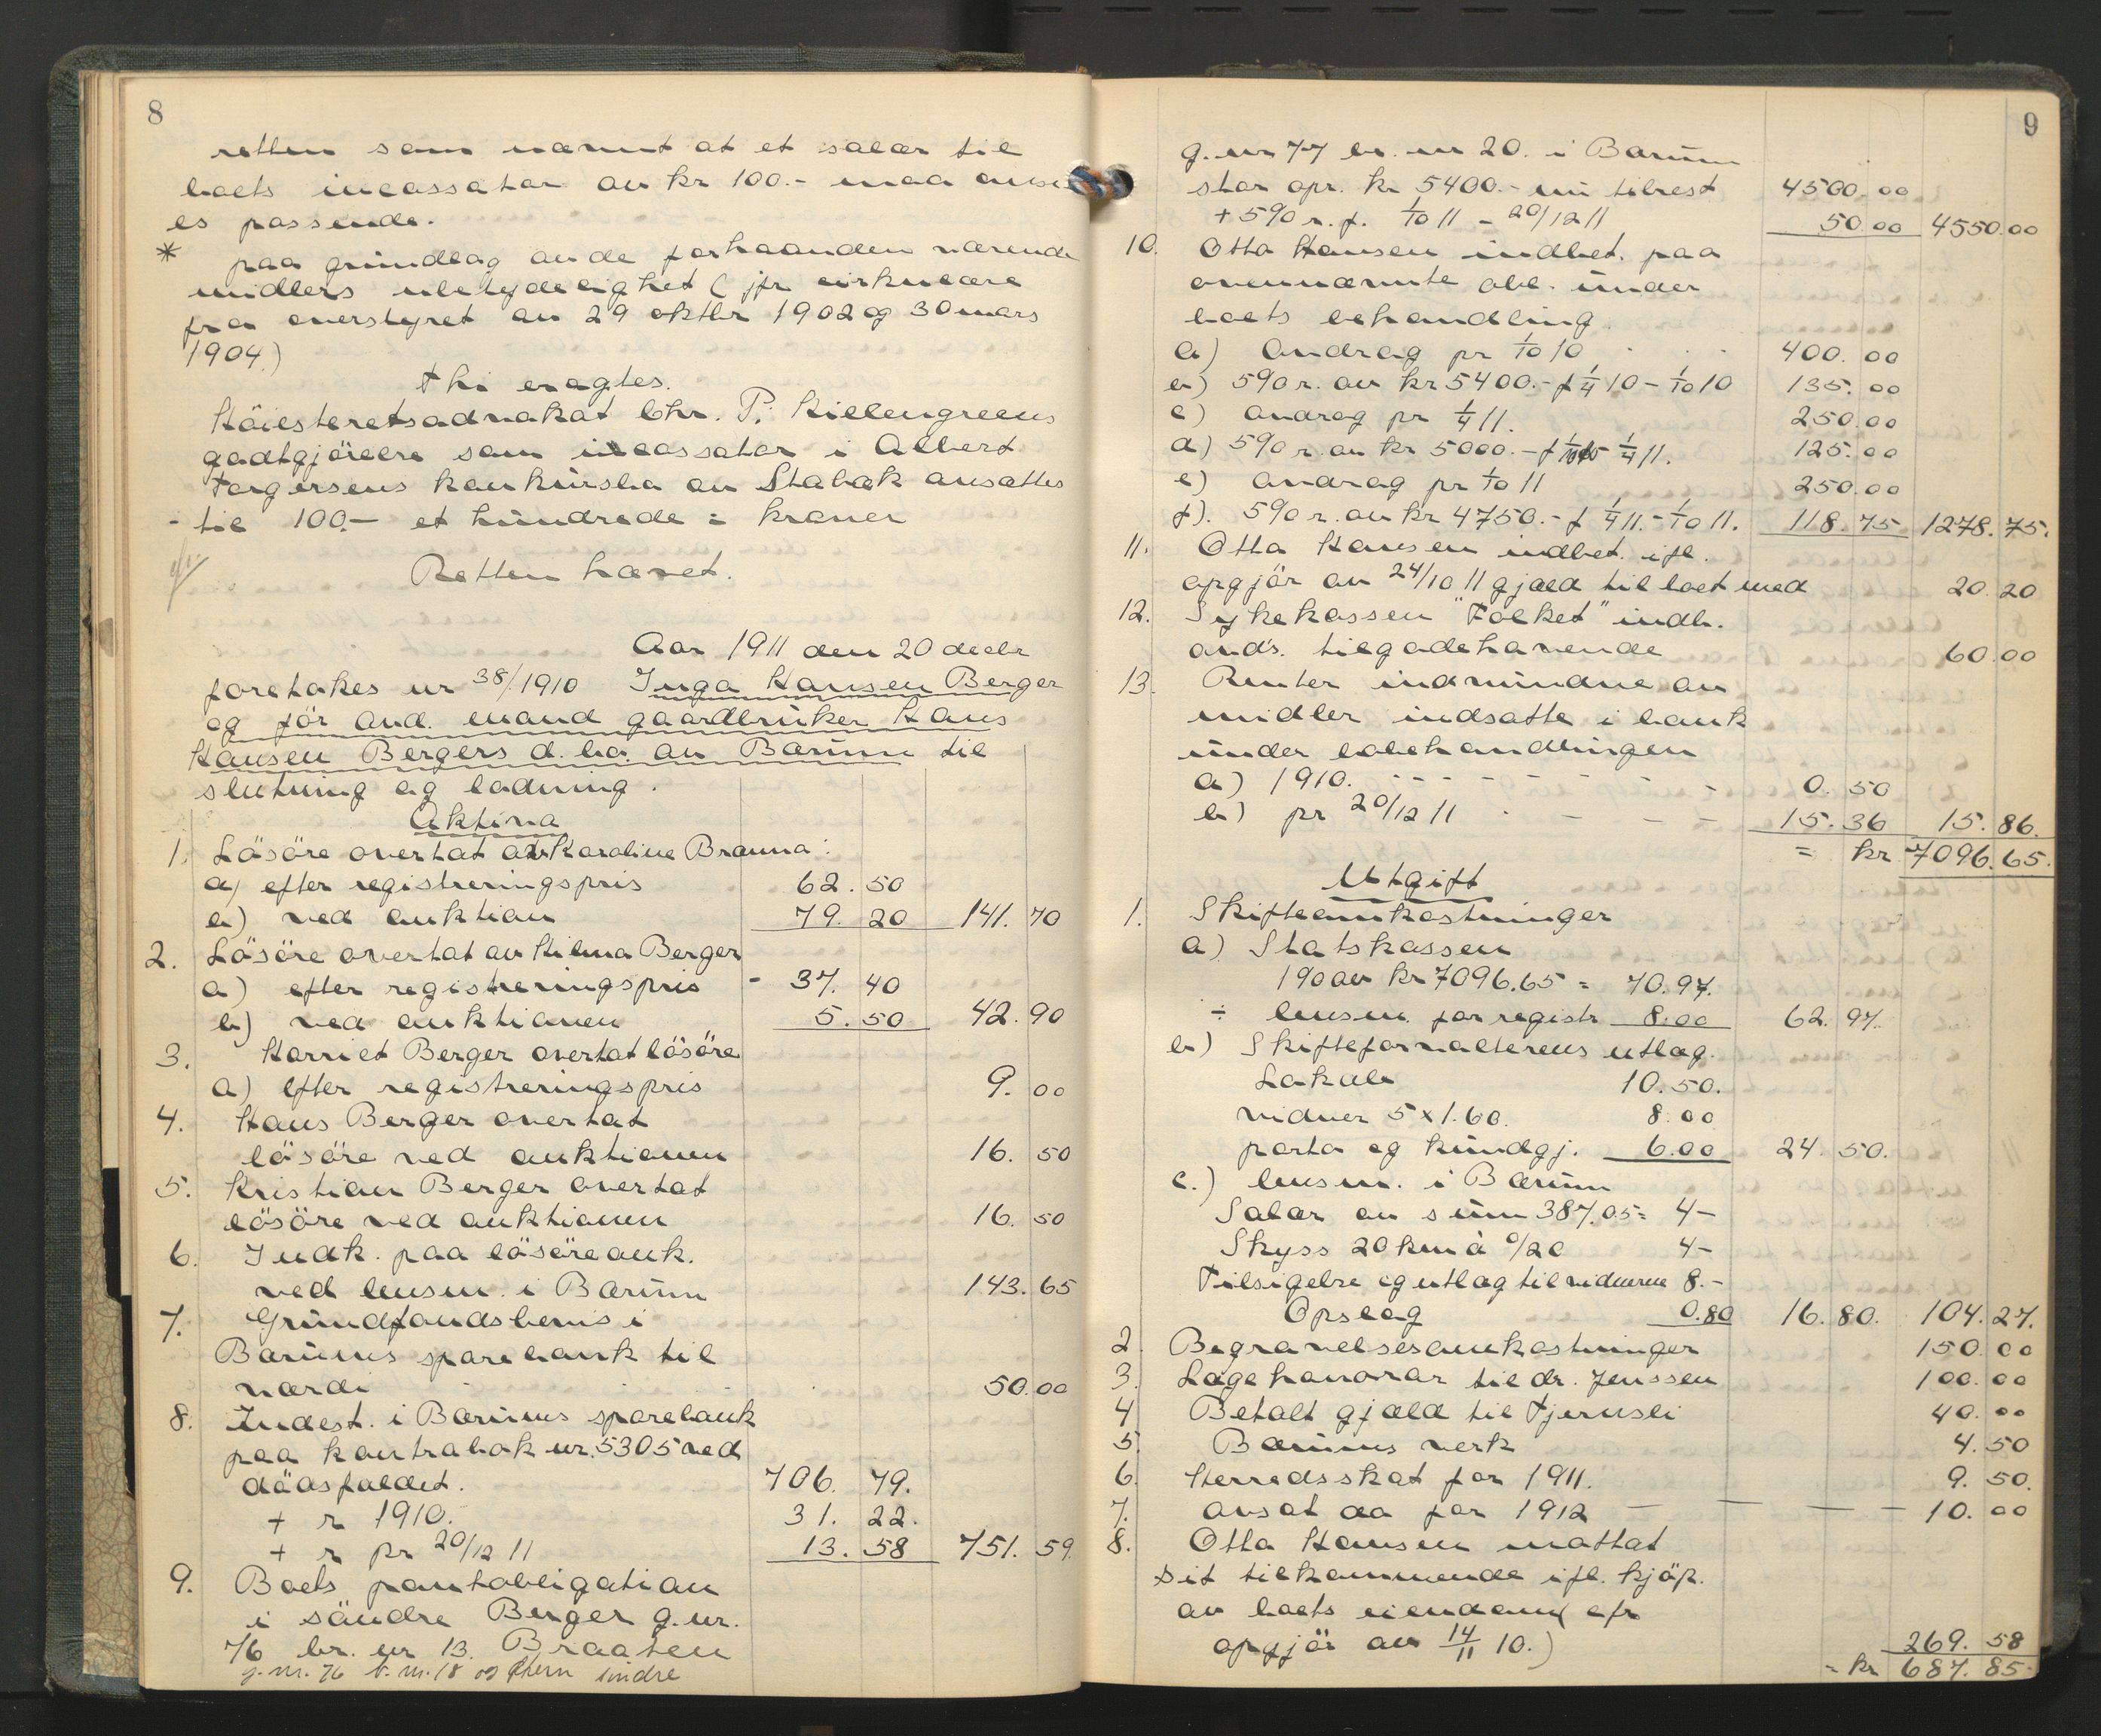 8
retten som nævnt at et salær til
boets incassator av kr 100.- maa anse
es passende.
* paa grundlag av de forhaanden værende
midlers ubetydelighet (jfr cirkulære
fra overstyret av 29 oktbr 1902 og 30 mars
1904)
thi eragtes.
Høiesteretsadvokat Chr. P. Killengreens
godtgjörelse som incassator i Albert
Torgersens konkursbo av Stabæk ansættes
til 100.- et hundrede = kroner
Retten hævet.
Aar 1911 den 20 decbr
foretokes nr 38/1910 Inga Hansen Berger
og før avd. mand gaardbruker Hans
Hansen Bergers d. bo. av Bærum til
slutning og lodning.
Aktiva
1. Løsøre overtat av Karoline Brauna:
a) efter registreringspris 62.50
b) ved auktion 79.20 141.70
2. Løsøre overtat av Hilma Berger
a) efter registreringspris - 37.40
b) ved auktionen 5.50 42.90
3. Harriet Berger overtat løsøre
a) efter registreringspris 9.00
4. Hans Berger overtat
løsøre ved auktionen 16.50
5. Kristian Berger overtat
løsøre ved auktionen 16.50
6. Indk. paa løsøreauk.
ved lensm. i Bærum 143.65
7. Grundfondsbevis i
Bærums sparebank til
værdi 50.00
8. Indest. i Bærums sparebank
paa kontrabok nr. 5305 ved
dødsfaldet. 706.79.
+ r 1910. 31.22.
+ r pr 20/12 11 13.58 751.59.
9. Boets pantobligation
i søndre Berger g.nr.
76 br. nr 13. Braaten
g.nr. 76 b.nr. 18 og indre
9
g.nr 77 br. nr 20. i Bærum
stor opr. kr 5400.- nu tilrest 4500.00
+ 5% r. f. 1/10 11 - 20/12 11 50.00 4550.00
10. Otto Hansen indbet. paa
ovennævnte obl. under
boets behandling.
a) avdrag pr 1/10 10 400.00
b) 5% r. av kr 5400.- f 1/4 10 - 1/10 10 135.00
c) avdrag pr 1/4 11. 250.00
d) 5% r. av kr 5000.- f 1/10 10 1/4 11. 125.00
e) avdrag pr 1/10 11 250.00
f). 5% r. av kr 4750.- f 1/4 11. - 1/10 11. 118.75 1278.75.
11. Otto Hansen indbet. ifl.
opgjör av 24/10 11 gjæld til boet med 20.20
12. Sykekassen "Folket" indb.
avd's. tilgodehavende 60.00
13. Renter indvundne av
midler indsatte i bank
under bobehandlingen
a) 1910. - - - - - - 0.50
b) pr 20/12 11 - - - 15.36 15.86.
= kr 7096.65.
Utgift
1. Skifteomkostninger
a) Statskassen
1% av kr 7096.65 = 70.97.
÷ lensm. for registr 8.00 62.97.
b) Skifteforvalterens utlæg.
Lokale 10.50.
vidner 5 x 1.60. 8.00
porto og kundgj. 6.00 24.50.
c.) lensm. i Bærum
Salær av sum 387.05 = 4-
Skyss 20 km à 0/20 4-
Tilsigelse og utlæg til vidnerne 8.-
Opslag 0.80 16.80. 104.27.
2. Begravelsesomkostninger 150.00
3. Lægehonorar til dr. Jenssen 100.00
4 Betalt gjæld til Tjernsli 40.00
5. Bærums verk 4.50
6. Herredsskat for 1911. 9.50.
7. ansat do for 1912 - - - 10.00
8. Otto Hansen mottat
sit tilkommende ifl. kjöp.
av boets eiendom (efr
opgjör av 14/11 10.) 269.58
= kr 687.85.